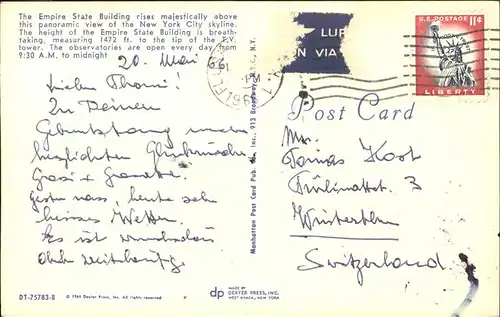 The Empire State Building rises majestically above
this panoramic view of the New York City skyline.
The height of the Empire State Building is breath-
taking, measuring 1472 ft. to the tip of the T.V.
tower. The observatories are open every day from
9:30 A.M. to midnight
20. Mai 66
Lieben Thomi!
Zu Deinem
Geburtstag
herzlichsten Glückwünsche.
Gestern nass, heute sehr
heisses Wetter.
Es ist wunderschön
DT-75783-B
© 1964 Dexter Press, Inc. All rights reserved
Manhattan Post Card Pub. Co., Inc., 913 Broadway, N.Y.C., N.Y.
dp MADE BY
DEXTER PRESS, INC.
WEST NYACK, NEW YORK
VIA
U.S. POSTAGE 11¢
LIBERTY
Post Card
Mr.
Tomas Kost
3
Winterthur
Switzerland